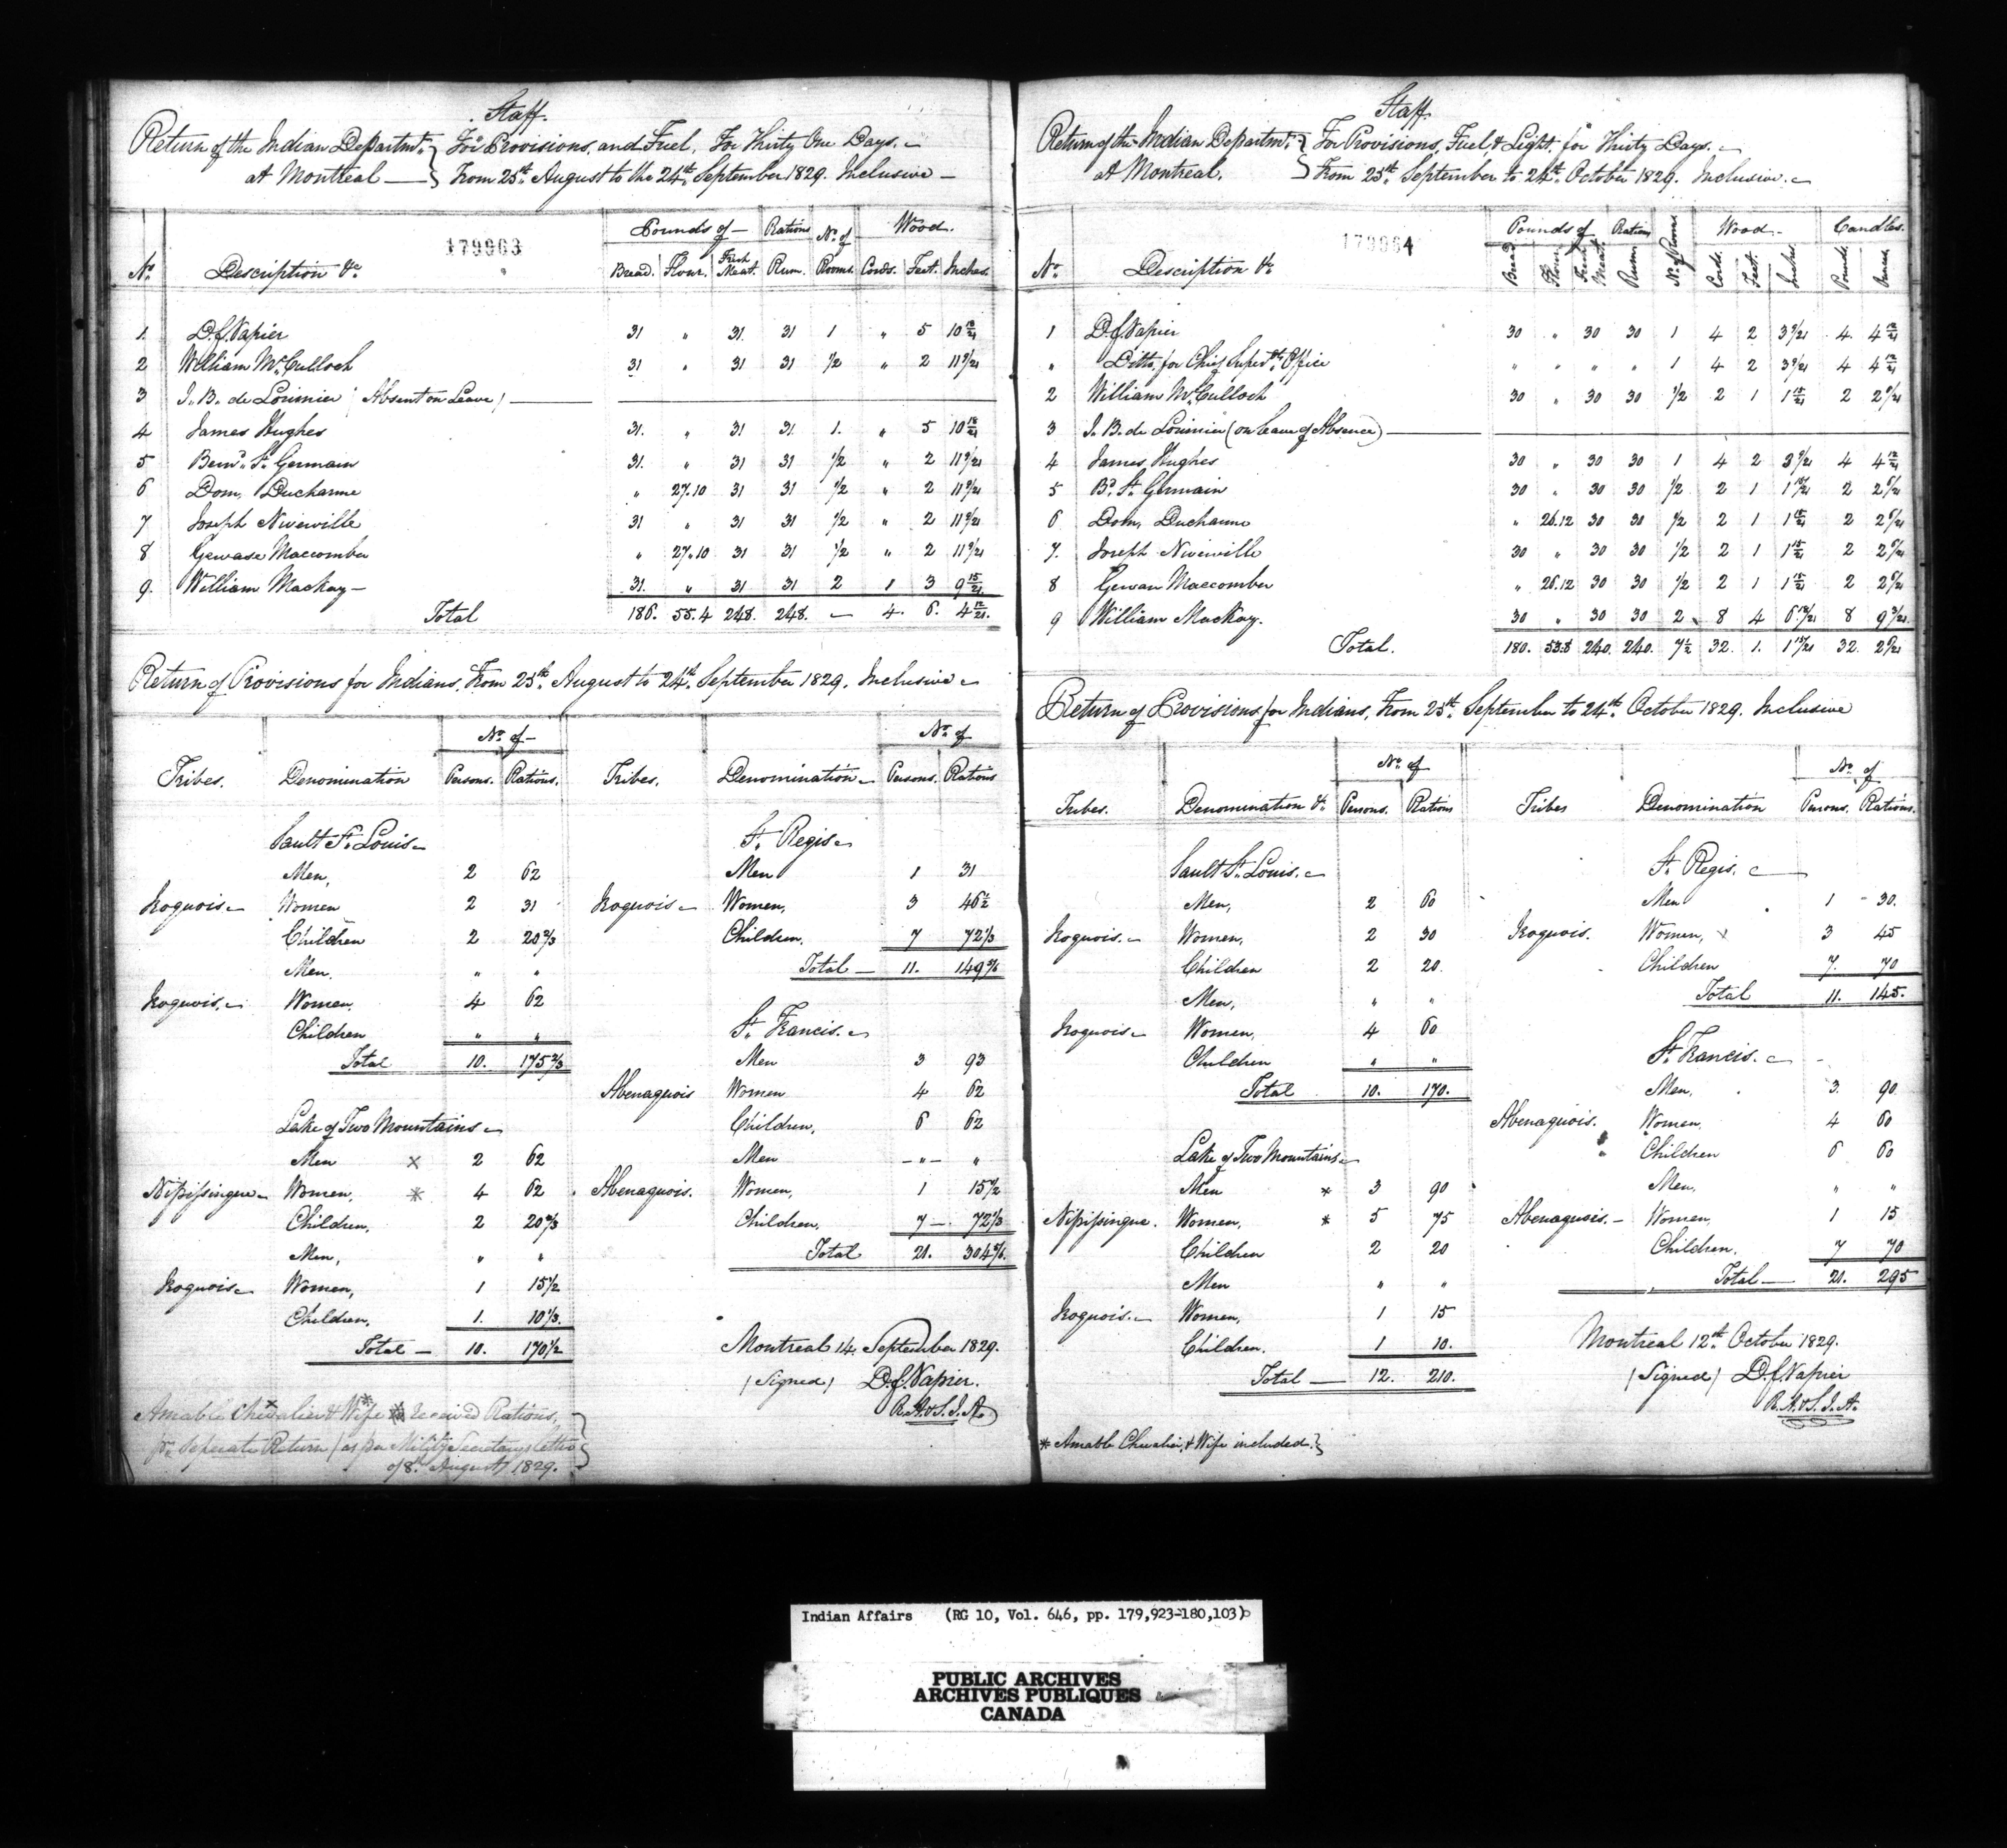 Staff.
Return of the Indian Departmt. } For Provisions, and Fuel, For Thirty One Days.
at Montreal — } From 25th. August to the 24th. September 1829. Inclusive —
179963
Pounds of — Rations No. of Wood.
No. Description &c. Bread. Flour. Fresh Meat. Rum. Rooms. Cords. Feet. Inches.
1. D.C. Napier 31 " 31. 31 1 " 5 10 12/21
2 William McCulloch 31 " 31 31 1/2 " 2 11 9/21
3 J. B. de Lorimier (Absent on Leave) —
4 James Hughes 31. " 31 31. 1. " 5 10 12/21
5 Bernd. St. Germain 31. " 31 31 1/2 " 2 11 9/21
6 Dom. Ducharme " 27.10 31 31 1/2 " 2 11 9/21
7 Joseph Niverville 31 " 31 31 1/2 " 2 11 9/21
8 Gervase Maccomber " 27.10 31 31 1/2 " 2 11 9/21
9. William Mackay — 31. " 31 31 2 1 3 9 15/21
Total 186. 55.4 248. 248. — 4. 6. 4 12/21.
Return of Provisions for Indians, From 25th. August to 24th. September 1829. Inclusive
No. of — No. of
Tribes. Denomination Persons. Rations. Tribes. Denomination Persons. Rations
Sault St. Louis
Men, 2 62
Iroquois Women 2 31
Children 2 20 2/3
Men. " "
Iroquois. Women. 4 62
Children " "
Total 10. 175 2/3
Lake of Two Mountains
Men x 2 62
Nipissingue Women, * 4 62
Children, 2 20 2/3
Men, " "
Iroquois Women, 1 15 1/2
Children, 1. 10 1/3.
Total — 10. 170 1/2
St. Regis
Men 1 31
Iroquois Women, 3 46 1/2
Children. 7 72 1/3
Total — 11. 149 5/6
St. Francis.
Men 3 93
Abenaquois Women 4 62
Children, 6 62
Men — " — "
Abenaquois. Women, 1 15 1/2
Children, 7 — 72 1/3
Total 21. 304 5/6.
Montreal 14 September 1829.
(Signed) D.C. Napier.
R.A. & S.I.A.
Amable Chevalier & Wife * received Rations,
pr. Seperate Return (as per Military Secretarys Letter
of 8th. August) 1829.
Staff
Return of the Indian Departmt. } For Provisions, Fuel, & Light, for Thirty Days.
at Montreal. } From 25th. September to 24th. October 1829. Inclusive.
179964
Pounds of Rations No. of Rooms Wood. Candles.
No. Description &c. Bread Flour Fresh Meat. Rum Cords. Feet. Inches Pounds Ounces
1 D.C. Napier 30 " 30 30 1 4 2 3 9/21 4. 4 12/21
" Ditto, for Chief Superdt. Office " " " " 1 4 2 3 9/21 4 4 12/21
2 William McCulloch 30 " 30 30 1/2 2 1 1 15/21 2 2 6/21
3 J. B. de Lorimier (on leave of Absence) —
4 James Hughes 30 " 30 30 1 4 2 3 9/21 4 4 12/21
5 Bd. St. Germain 30 " 30 30 1/2 2 1 1 15/21 2 2 6/21
6 Dom. Ducharme " 26.12 30 30 1/2 2 1 1 15/21 2 2 6/21
7. Joseph Niverville 30 " 30 30 1/2 2 1 1 15/21 2 2 6/21
8 Gervan Maccomber " 26.12 30 30 1/2 2 1 1 15/21 2 2 6/21
9 William MacKay. 30 " 30 30 2 8 4 6 18/21 8 9 3/21
Total. 180. 53.8 240. 240. 7 1/2 32. 1. 1 15/21 32 2 6/21
Return of Provisions for Indians, From 25th. September to 24th. October 1829. Inclusive
No. of No. of
Tribes. Denomination &c. Persons. Rations Tribes Denomination Persons. Rations.
Sault St. Louis.
Men, 2 60
Iroquois. Women, 2 30
Children 2 20.
Men, " "
Iroquois Women, 4 60
Children " "
Total 10. 170.
Lake of Two Mountains
Men * 3 90
Nipissingue. Women, * 5 75
Children 2 20
Men " "
Iroquois. Women, 1 15
Children. 1 10.
Total — 12. 210.
St. Regis.
Men 1 30.
Iroquois. Women, x 3 45
Children 7. 70
Total 11. 145.
St. Francis.
Men, 3. 90
Abenaquois. Women, 4 60
Children 6 60
Men, " "
Abenaquois. — Women, 1 15
Children. 7 70
Total — 21. 295
Montreal 12th. October 1829.
(Signed) D.C. Napier
R.A. & S.I.A.
* Amable Chevalier, & Wife included. }
Indian Affairs (RG 10, Vol. 646, pp. 179,923-180,103)
PUBLIC ARCHIVES
ARCHIVES PUBLIQUES
CANADA